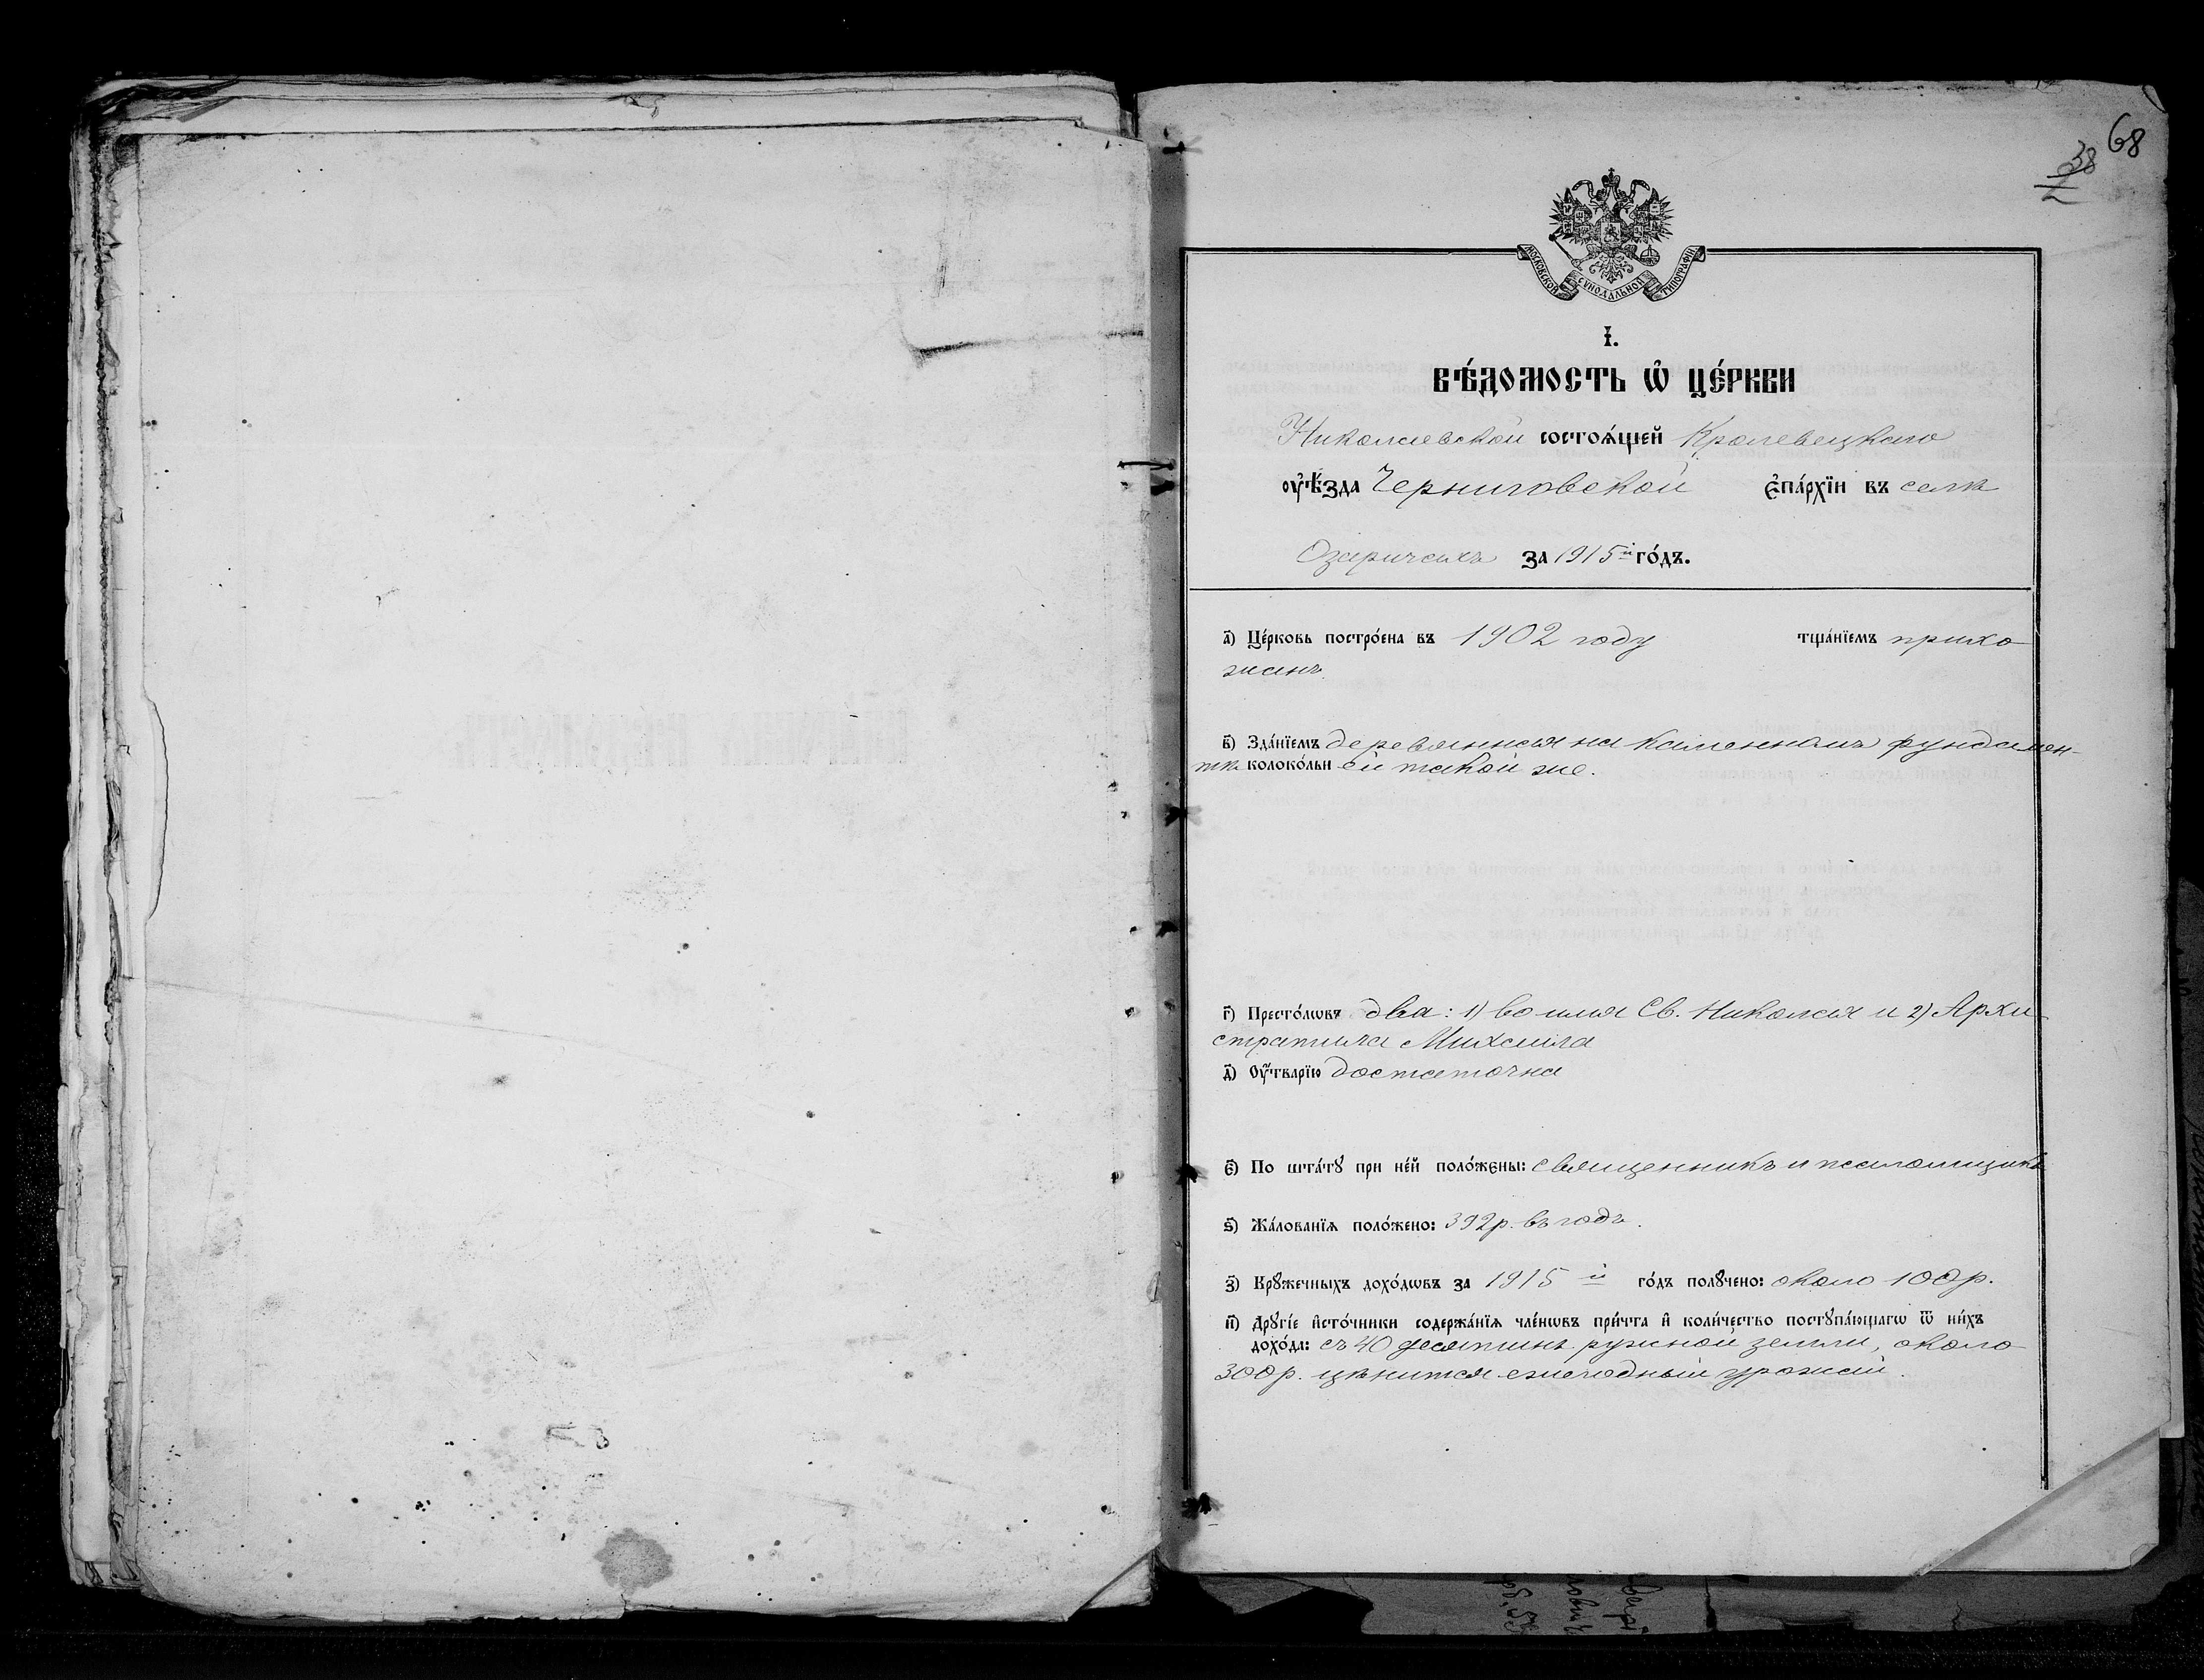 68
38
МОСКОВСКОЙ СѴНОДАЛЬНОЙ ТИПОГРАФІИ
І.
ВѢ́ДОМОСТЬ Ѡ҆ ЦЕ́РКВИ
Николаевской состоѧ́щей Кролевецкаго
ᲂу҆ѣ́зда Черниговской є҆па́рхїи въ селѣ
Озаричахъ за 1915й го́дъ.
а҃) Це́рковь постро́ена въ 1902 году тща́нїемъ прихо-
жанъ.
в҃) Зда́нїемъ деревянная на каменномъ фундамен-
тѣ колоко́льн ей такой же.
г҃) Престо́лѡвъ два: 1) во имя Св. Николая и 2) Архи-
стратига Михаила
д҃) Оу҆́тварїю достаточна
є҃) По шта́тꙋ при не́й поло́жены: священникъ и псаломщикъ
ѕ҃) Жа́лованїѧ поло́жено: 392 р. въ годъ.
з҃) Крꙋ́жечныхъ дохо́дѡвъ за 1915 й го́дъ полꙋ́чено: около 100 р.
и҃) Дрꙋгі́е и҆сто́чники содержа́нїѧ чле́нѡвъ при́чта и҆ коли́чество постꙋпа́ющагѡ ѿ ни́хъ
дохо́да: съ 40 десятинъ ружной земли, около
300 р. цѣнится ежегодный урожай.